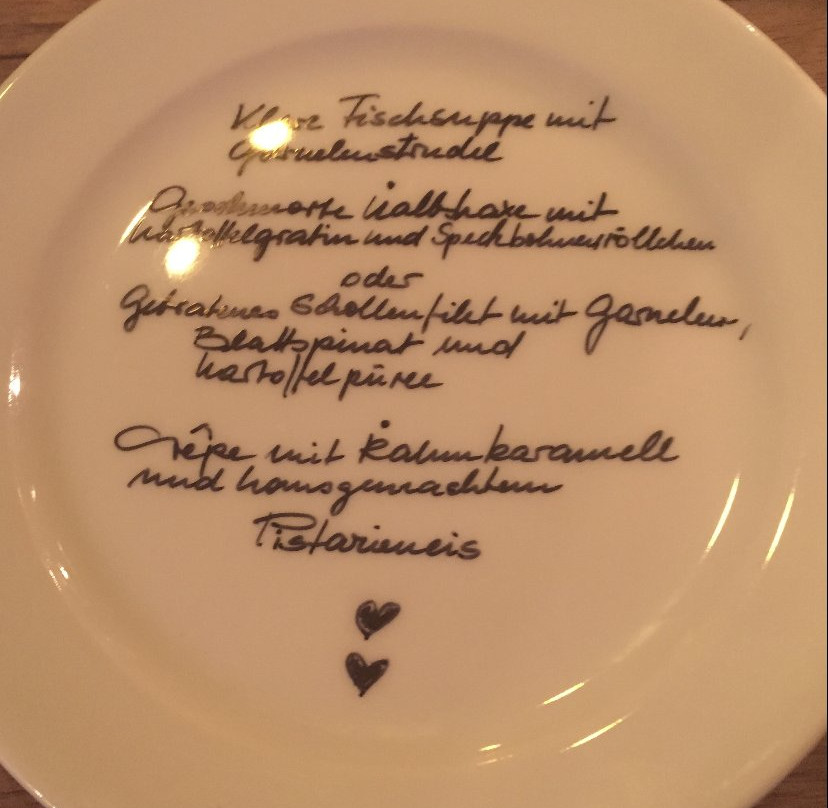 Klare Fischsuppe mit
Garnelenstrudel
Geschmorte Kalbshaxe mit
Kartoffelgratin und Speckbohnenröllchen
oder
Gebratenes Schollenfilet mit Garnelen,
Blattspinat und
Kartoffelpüree
Crêpe mit Rahmkaramell
und hausgemachtem
Pistazieneis